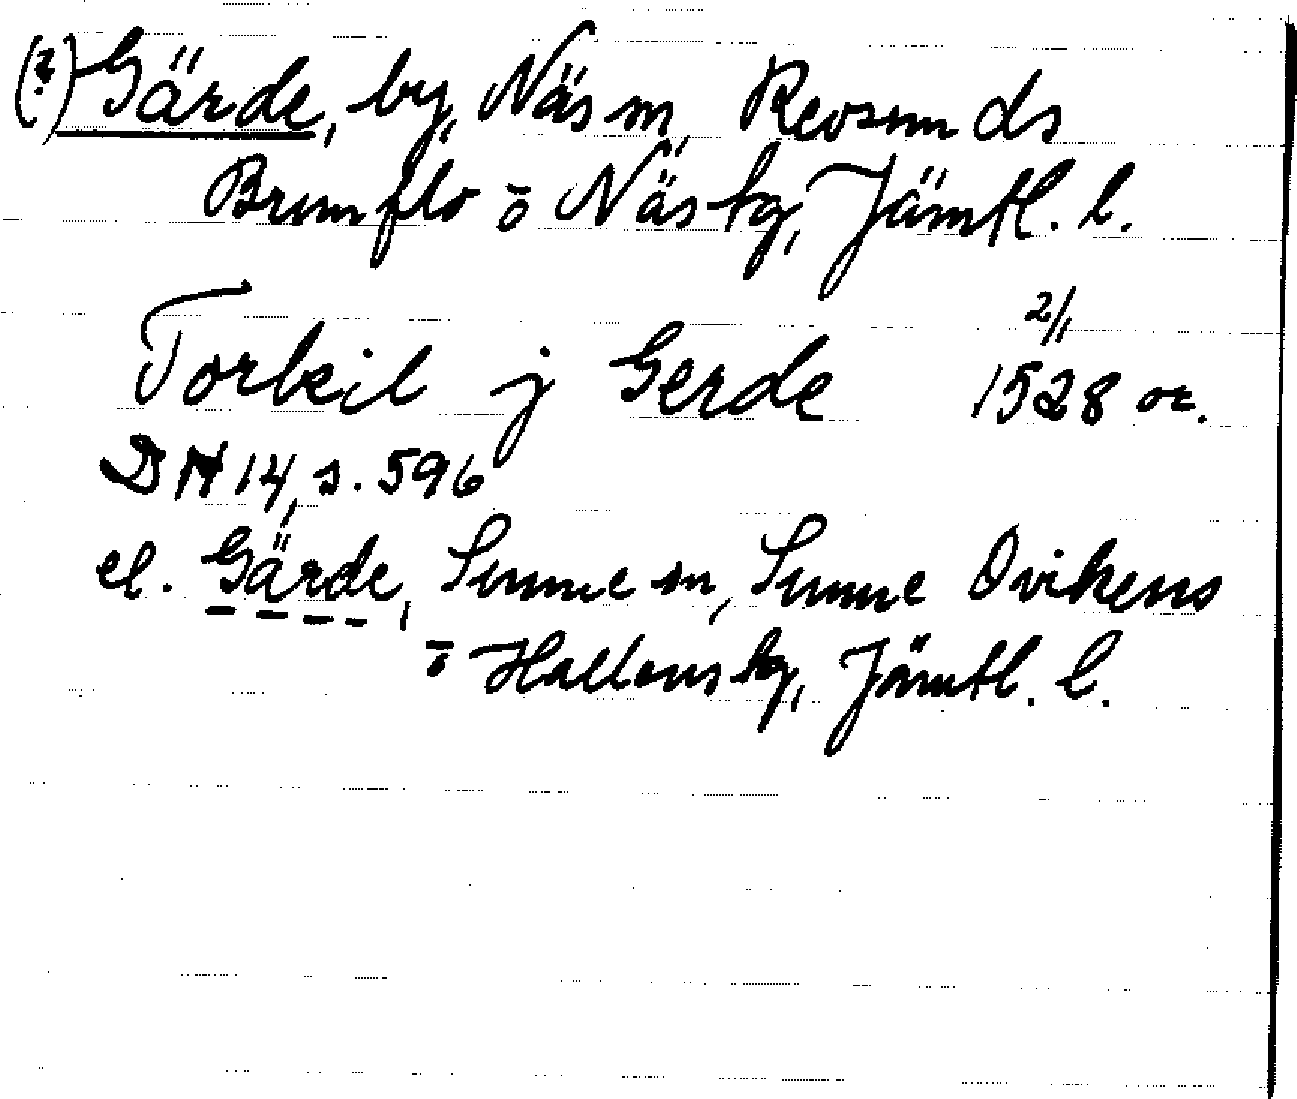 (?) Gärde, by, Näs sn, Revsunds
Brunflo o Näs tg, Jämtl. l.
Torkil j Gerde 2/1 1528 or.
DN 14, s. 596
el. Gärde, Sunne sn, Sunne Ovikens
o Hallens tg, Jämtl. l.